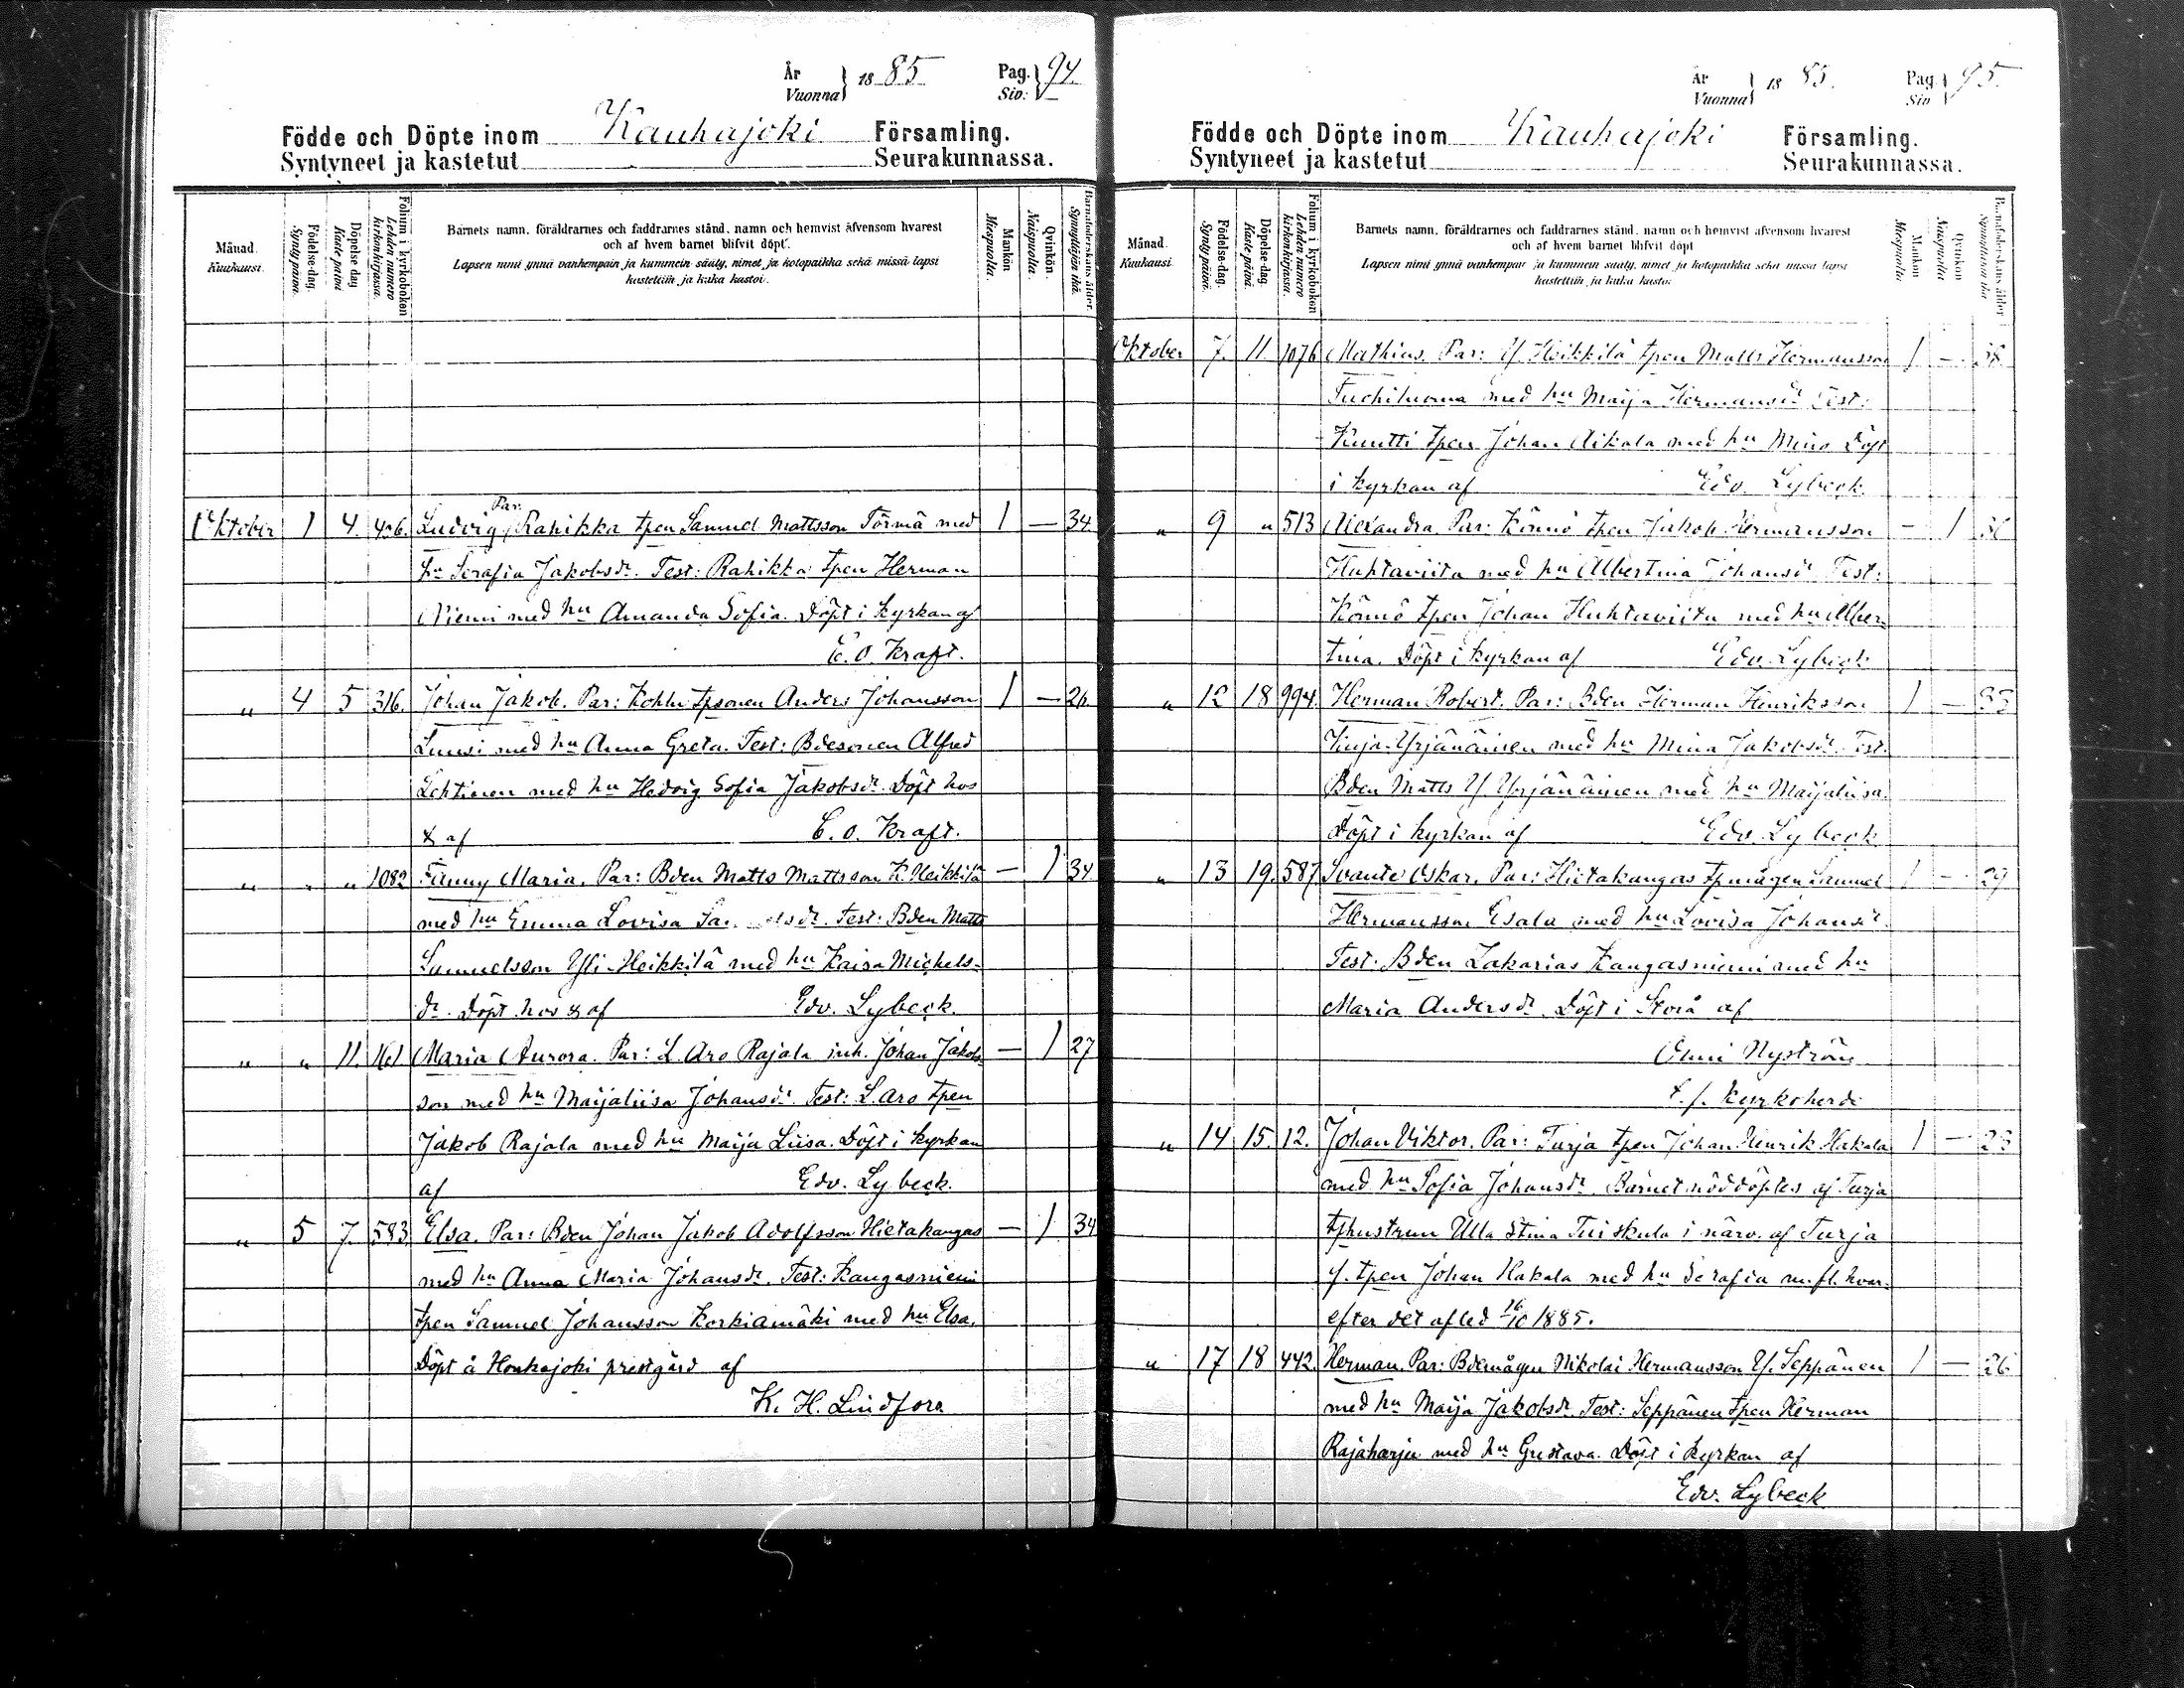 År
Vuonna } 1885 Pag. } 94
Siv:
Födde och Döpte inom Kauhajoki Församling.
Syntyneet ja kastetut Seurakunnassa.
Månad. Kuukausi.
Födelse-dag. Synty päivä.
Döpelse dag Kaste päivä
Folium i kyrkoboken Lehden numero kirkonkirjassa.
Barnets namn, föräldrarnes och faddrarnes stånd, namn och hemvist äfvensom hvarest
och af hvem barnet blifvit döpt.
Lapsen nimi ynnä vanhempain ja kummein sääty, nimet ja kotopaikka sekä missä lapsi
kastettiin ja kuka kastoi.
Mankön Miespuolia.
Qvinkön. Naispuolia.
Barnaföderskans ålder. Synnyttäjän ikä.
Oktober 1 4. 406. Ludvig, Par. Rahikka tpen Samuel Mattsson Törmä med 1 — 34
hu Serafia Jakobsdr. Test: Rahikka tpen Herman
Niemi med hu Amanda Sofia. Döpt i kyrkan af
C. O. Kraft.
" 4 5 316. Johan Jakob. Par: tpsonen Anders Johansson 1 — 26
Luusi med hu Anna Greta. Test: Bdesonen Alfred
Lehtinen med hu Hedvig Sofia Jakobsdr. Döpt hos
& af C. O. Kraft.
" " " 1082 Fanny Maria. Par: Bden Matts Mattsson K. Heikkilä — 1 34
med hu Emma Lovisa Test: Bden Matts
Samuelsson Yli-Heikkilä med hu Kaisa Michels-
dr. Döpt hos & af Edv. Lybeck.
" " 11. 161 Maria Aurora. Par: L. Aro Rajala inh. Johan Jakobs- — 1 27
son med hu Maijaliisa Johansdr. Test: L. Aro tpen
Jakob Rajala med hu Maija Liisa. Döpt i kyrkan
af Edv. Lybeck.
" 5 7. 583 Elsa. Par: Bden Johan Jakob Adolfsson Hietakangas — 1 34
med hu Anna Maria Johansdr. Test: Kangasniemi
tpen Samuel Johansson Korkiamäki med hu Elsa.
Döpt å Honkajoki prestgård af
K. H. Lindfors
År
Vuonna } 1885. Pag. } 95.
Siv
Födde och Döpte inom Kauhajoki Församling.
Syntyneet ja kastetut Seurakunnassa.
Månad. Kuukausi
Födelse-dag. Synty päivä.
Döpelse-dag Kaste päivä.
Folium i kyrkoboken Lehden numero kirkonkirjassa.
Barnets namn, föräldrarnes och faddrarnes stånd, namn och hemvist äfvensom hvarest
och af hvem barnet blifvit döpt
Lapsen nimi ynnä vanhempain ja kummein sääty, nimet ja kotopaikka sekä missä lapsi
kastettiin ja kuka kastoi
Mankön Miespuolia
Qvinkön Naispuolia
Barnaföderskans ålder Synnyttäjän ikä
Oktober 7. 11. 1076 Mathias. Par: Y. Heikkilä tpen Matts Hermansson 1 — 38
med hu Maija Hermansdr Test:
Knutti tpen Johan Aikala med hu Mino Döpt
i kyrkan af Edv. Lybeck.
" 9 " 513 Alexandra. Par: Könnö tpen Jakob Hermansson — 1
Huhtaviita med hu Albertina Johansdr Test:
Könnö tpen Johan Huhtaviita med hu Alber-
tina. Döpt i kyrkan af Edv. Lybeck
" 12 18 994. Herman Robert. Par: Bden Herman Henriksson 1 — 33
Yrjänäinen med hu Mina Jakobsdr. Test.
Bden Matts Y. Yrjänäinen med hu Maijaliisa.
Döpt i kyrkan af Edv. Lybeck
" 13 19. 587 Svante Oskar. Par: Hietakangas tpmågen Samuel 1 — 29
Hermansson Esala med hu Lovisa Johansdr.
Test: Bden Zakarias Kangasniemi med hu
Maria Andersdr. Döpt i Storå af
Onni Nyström
t. f. kyrkoherde
" 14 15. 12. Johan Viktor. Par: Turja tpen Johan Henrik Hakala 1 — 23
med hu Sofia Johansdr. Barnet nöddöptes af Turja
tphustrun Ulla Stina Tuiskula i närv. af Turja
f. tpen Johan Hakala med hu Serafia m.fl. hvar-
efter det afled 16/10 1885.
" 17 18 442. Herman. Par: Bdemågen Nikolai Hermansson Y. Seppänen 1 — 26
med hu Maija Jakobsdr. Test: Seppänen tpen Herman
Rajaharju med hu Gustava. Döpt i kyrkan af
Edv. Lybeck